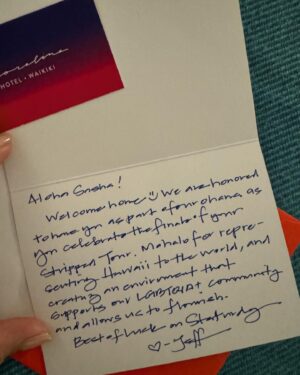 HOTEL • WAIKIKI
Aloha Sasha!
Welcome home :) We are honored
to have you as part of our ohana as
you celebrate the finale of your
Stripped Tour. Mahalo for repre-
senting Hawaii to the world, and
creating an enviroment that
supports our LGBTQIA+ community
and allows us to flourish.
Best of luck on Saturday
♡ - Jeff